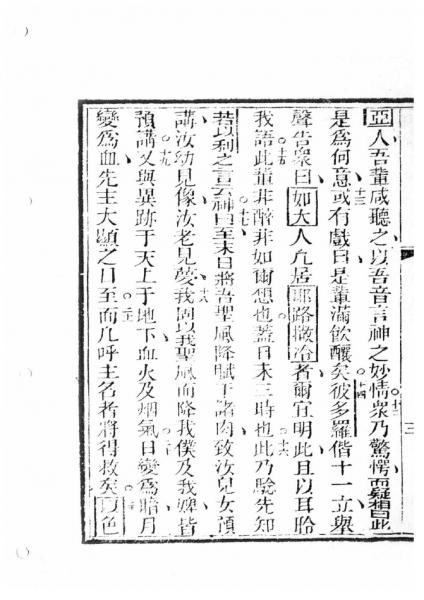 亞人吾輩咸聽之以吾音言神之妙情○十二衆乃驚愕而疑相曰此
是為何意十三或有戲曰是輩滿飲釀矣○十四彼多羅偕十一立舉
聲告衆曰如大人凢居耶路撒冷者爾宜明此且以耳聆
我語○十五此輩非醉非如爾想也蓋日未三時也○十六此乃騐先知
若以利之言云○十七神曰至末日將吾聖風降賦于諸肉致汝兒女預
講汝幼見像汝老見夢十八我固以我聖風而降我僕及我婢皆
預講○十九又與異跡于天上于地下血火及烟氣○二十日變為暗月
變為血先主大顯之日至○二十一而凢呼主名者將得救矣以色
三